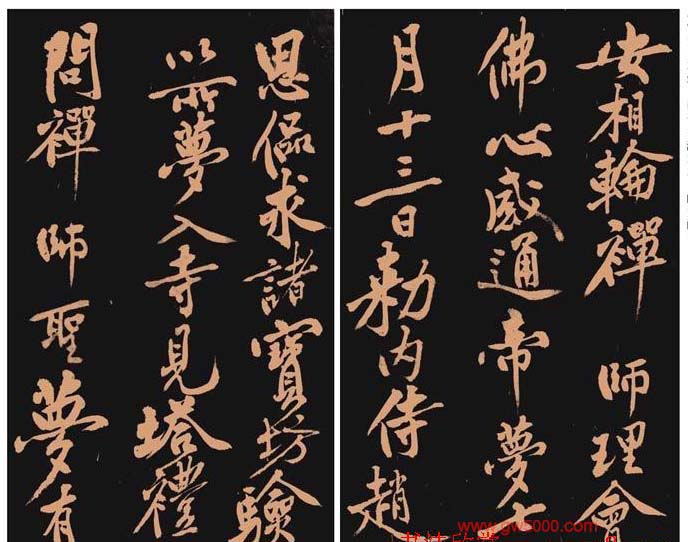 安相輪禪師理會
佛心感通帝夢七
月十三日勅内侍趙
思侃求諸寶坊驗
以所夢入寺見塔禮
問禪師聖夢有
www.gw5000.com